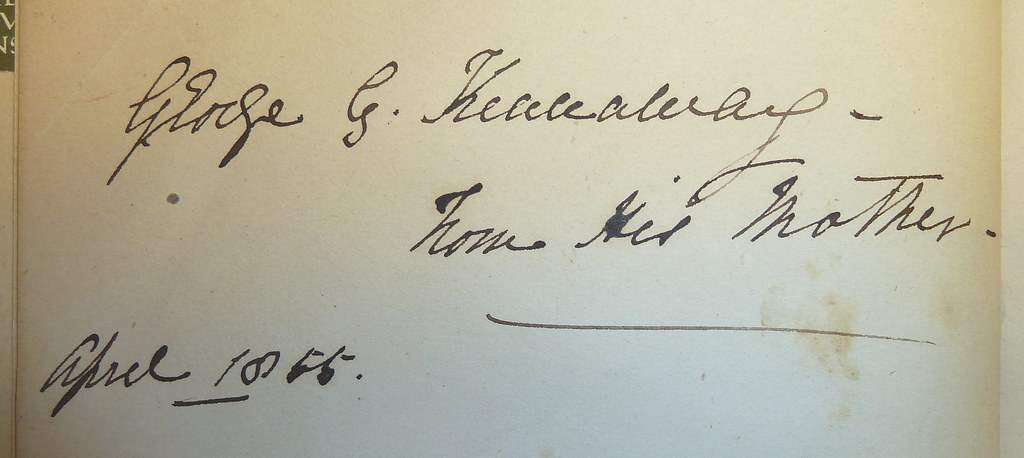 George G. Kennaway -
From His Mother -
April 1855.